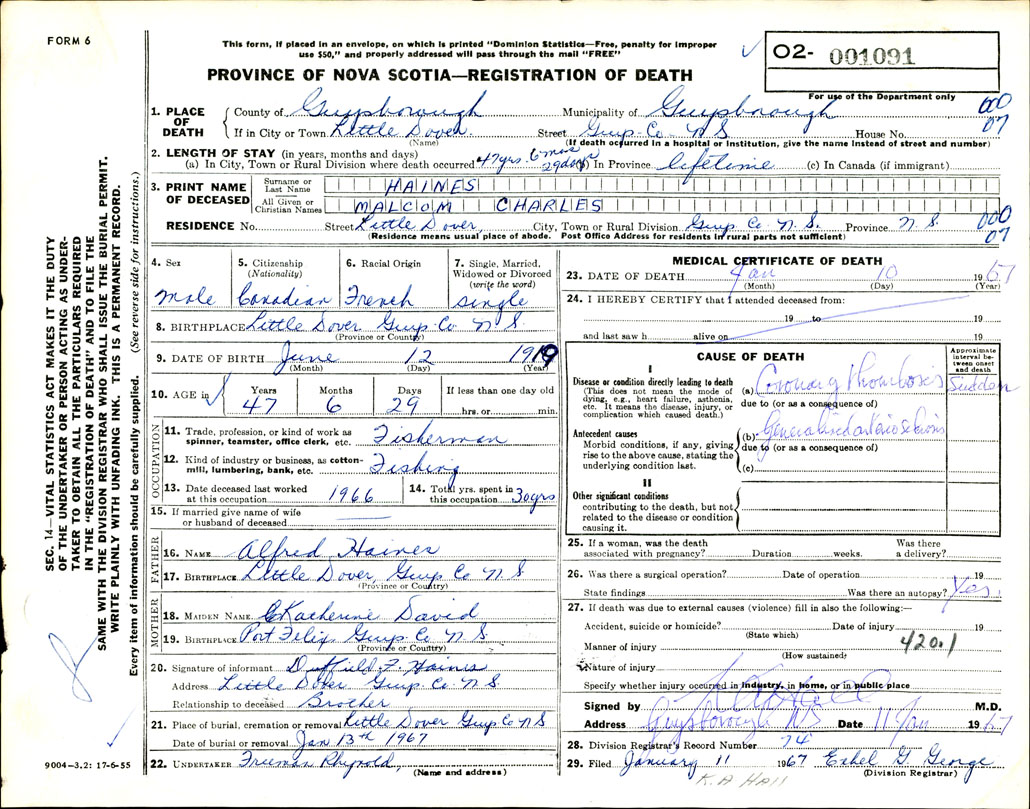 FORM 6
This form, if placed in an envelope, on which is printed "Dominion Statistics—Free, penalty for improper
use $50," and properly addressed will pass through the mail "FREE"
O2- 001091
PROVINCE OF NOVA SCOTIA—REGISTRATION OF DEATH
For use of the Department only
1. PLACE OF DEATH County of Guysborough Municipality of Guysborough 000
If in City or Town Little Dover Street Guys Co N S House No. 07
(Name) (If death occurred in a hospital or institution, give the name instead of street and number)
2. LENGTH OF STAY (in years, months and days)
(a) In City, Town or Rural Division where death occurred 47 yrs. 6 mos 29 days (b) In Province lifetime (c) In Canada (if immigrant)
3. PRINT NAME OF DECEASED Surname or Last Name HAINES
All Given or Christian Names MALCOM CHARLES
RESIDENCE No. Street Little Dover, City, Town or Rural Division Guys Co N. S. Province N. S. 000 07
(Residence means usual place of abode. Post Office Address for residents in rural parts not sufficient)
4. Sex 5. Citizenship (Nationality) 6. Racial Origin 7. Single, Married, Widowed or Divorced (write the word)
Male Canadian French single
8. BIRTHPLACE Little Dover Guys Co N S
(Province or Country)
9. DATE OF BIRTH June 12 1919
(Month) (Day) (Year)
10. AGE in Years Months Days If less than one day old
47 6 29 hrs. or min.
OCCUPATION
11. Trade, profession, or kind of work as spinner, teamster, office clerk, etc. Fisherman
12. Kind of industry or business, as cotton-mill, lumbering, bank, etc. Fishing
13. Date deceased last worked at this occupation 1966 14. Total yrs. spent in this occupation 30 yrs
15. If married give name of wife or husband of deceased
FATHER
16. NAME Alfred Haines
17. BIRTHPLACE Little Dover, Guys Co N S
(Province or Country)
MOTHER
18. MAIDEN NAME Katherine David
19. BIRTHPLACE Port Felix Guys Co N S.
(Province or Country)
20. Signature of informant Duffield F. Haines
Address Little Dover Guys Co. N S.
Relationship to deceased Brother
21. Place of burial, cremation or removal Little Dover Guys Co N S
Date of burial or removal Jan 13th 1967
22. UNDERTAKER Freeman Rhynold,
(Name and address)
MEDICAL CERTIFICATE OF DEATH
23. DATE OF DEATH Jan 10 1967
(Month) (Day) (Year)
24. I HEREBY CERTIFY that I attended deceased from:
19 to 19
and last saw h alive on 19
CAUSE OF DEATH
Approximate interval between onset and death
I
Disease or condition directly leading to death (This does not mean the mode of dying, e.g., heart failure, asthenia, etc. It means the disease, injury, or complication which caused death.)
(a) Coronary Thrombosis Sudden
due to (or as a consequence of)
Antecedent causes
Morbid conditions, if any, giving rise to the above cause, stating the underlying condition last.
(b) Generalised arteriosclerosis
due to (or as a consequence of)
(c)
II
Other significant conditions contributing to the death, but not related to the disease or condition causing it.
25. If a woman, was the death associated with pregnancy? Duration weeks. Was there a delivery?
26. Was there a surgical operation? Date of operation 19
State findings Was there an autopsy? Yes
27. If death was due to external causes (violence) fill in also the following:—
Accident, suicide or homicide? Date of injury 19
(State which)
Manner of injury 420.1
(How sustained)
Nature of injury
Specify whether injury occurred in industry, in home, or in public place
Signed by M.D.
Address Guysborough NS Date 11 Jan 1967
28. Division Registrar's Record Number 74
29. Filed January 11 1967 Ethel G. George
(Division Registrar)
K. A Hall
SEC. 14—VITAL STATISTICS ACT MAKES IT THE DUTY
OF THE UNDERTAKER OR PERSON ACTING AS UNDER-
TAKER TO OBTAIN ALL THE PARTICULARS REQUIRED
IN THE "REGISTRATION OF DEATH" AND TO FILE THE
SAME WITH THE DIVISION REGISTRAR WHO SHALL ISSUE THE BURIAL PERMIT.
WRITE PLAINLY WITH UNFADING INK. THIS IS A PERMANENT RECORD.
Every item of information should be carefully supplied. (See reverse side for instructions.)
9004—3.2: 17-6-55